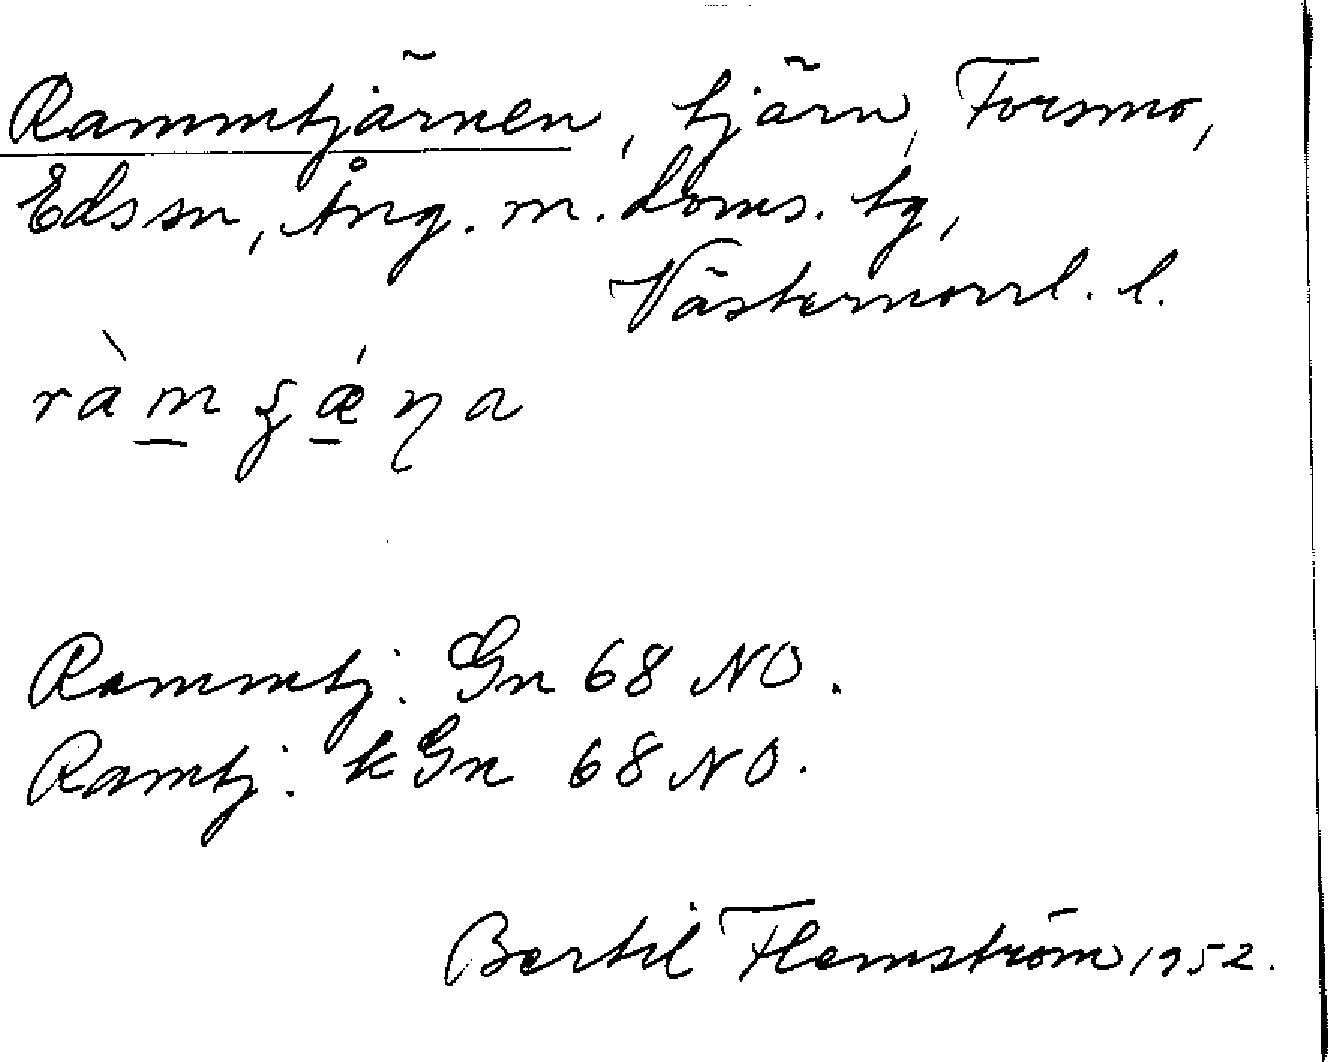 Rammtjärnen, tjärn, Forsmo,
Eds sn, Ång. m. doms. tg,
Västernorrl. l.
ràm ʂǽɳa
Rammtj. Gn 68 NO.
Ramtj. kGn 68 NO.
Bertil Flemström 1952.